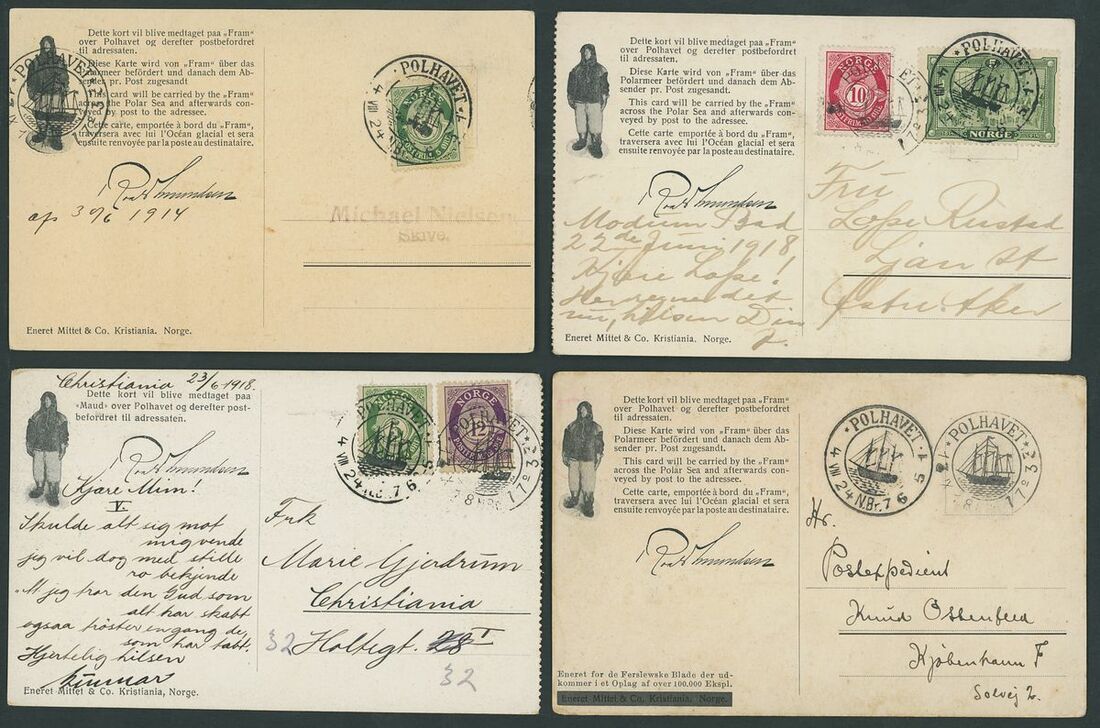 Dette kort vil blive medtaget paa „Fram“
over Polhavet og derefter postbefordret
til adressaten.
Diese Karte wird von „Fram“ über das
Polarmeer befördert und danach dem Ab-
sender pr. Post zugesandt
This card will be carried by the „Fram“
across the Polar Sea and afterwards con-
veyed by post to the adressee.
Cette carte, emportée à bord du „Fram“,
traversera avec lui l'Océan glacial et sera
ensuite renvoyée par la poste au destinataire.
POLHAVET
POLHAVET
4 VIII 24
NORGE
Roald Amundsen
30/6 1914
Michael Nielsen
Skive.
Eneret Mittet & Co. Kristiania. Norge.
Dette kort vil blive medtaget paa „Fram“
over Polhavet og derefter postbefordret
til adressaten.
Diese Karte wird von „Fram“ über das
Polarmeer befördert und danach dem Ab-
sender pr. Post zugesandt.
This card will be carried by the „Fram“
across the Polar Sea and afterwards con-
veyed by post to the adressee.
Cette carte, emportée à bord du „Fram“,
traversera avec lui l'Océan glacial et sera
ensuite renvoyée par la poste au destinataire.
NORGE
10
POLHAVET
NORGE
Roald Amundsen
Modum Bad
22de Juni 1918
Kjære
nu, hilsen Din
Fru
Rustad
Ljan St
Østre Aker
Eneret Mittet & Co. Kristiania. Norge.
Christiania 23/6 1918.
Dette kort vil blive medtaget paa
»Maud« over Polhavet og derefter post-
befordret til adressaten.
Roald Amundsen
Kjære Mim!
V.
Skulde alt sig mot
mig vende
jeg vil dog med stille
ro bekjende
At jeg tror den Gud som
alt har skabt
ogsaa trøster en gang de,
som har tabt.
Hjertelig hilsen
POLHAVET
4 VIII 24 N.Br. 76
5
NORGE
12
Frk
Marie Gjerdrum
Christiania
32 Holtegt. 28 I
32
Eneret Mittet & Co. Kristiania, Norge.
Dette kort vil blive medtaget paa „Fram“
over Polhavet og derefter postbefordret
til adressaten.
Diese Karte wird von „Fram“ über das
Polarmeer befördert und danach dem Ab-
sender pr. Post zugesandt.
This card will be carried by the „Fram“
across the Polar Sea and afterwards con-
veyed by post to the adressee.
Cette carte, emportée à bord du „Fram“,
traversera avec lui l'Océan glacial et sera
ensuite renvoyée par la poste au destinataire.
Roald Amundsen
POLHAVET
4 VIII 24 N.Br. 76 5
POLHAVET
Hr.
Postexpedient
Knud Ossenfeld
Kjøbenhavn F
Solvej 2.
Eneret for de Ferslewske Blade der ud-
kommer i et Oplag af over 100.000 Ekspl.
Eneret Mittet & Co. Kristiania. Norge.